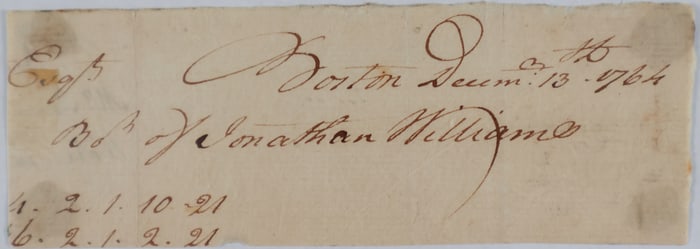 Esqr Boston Decemr. 13th 1764
Bot of Jonathan Williams
4. 2. 1. 10 - 21
6. 2. 1. 2. 21